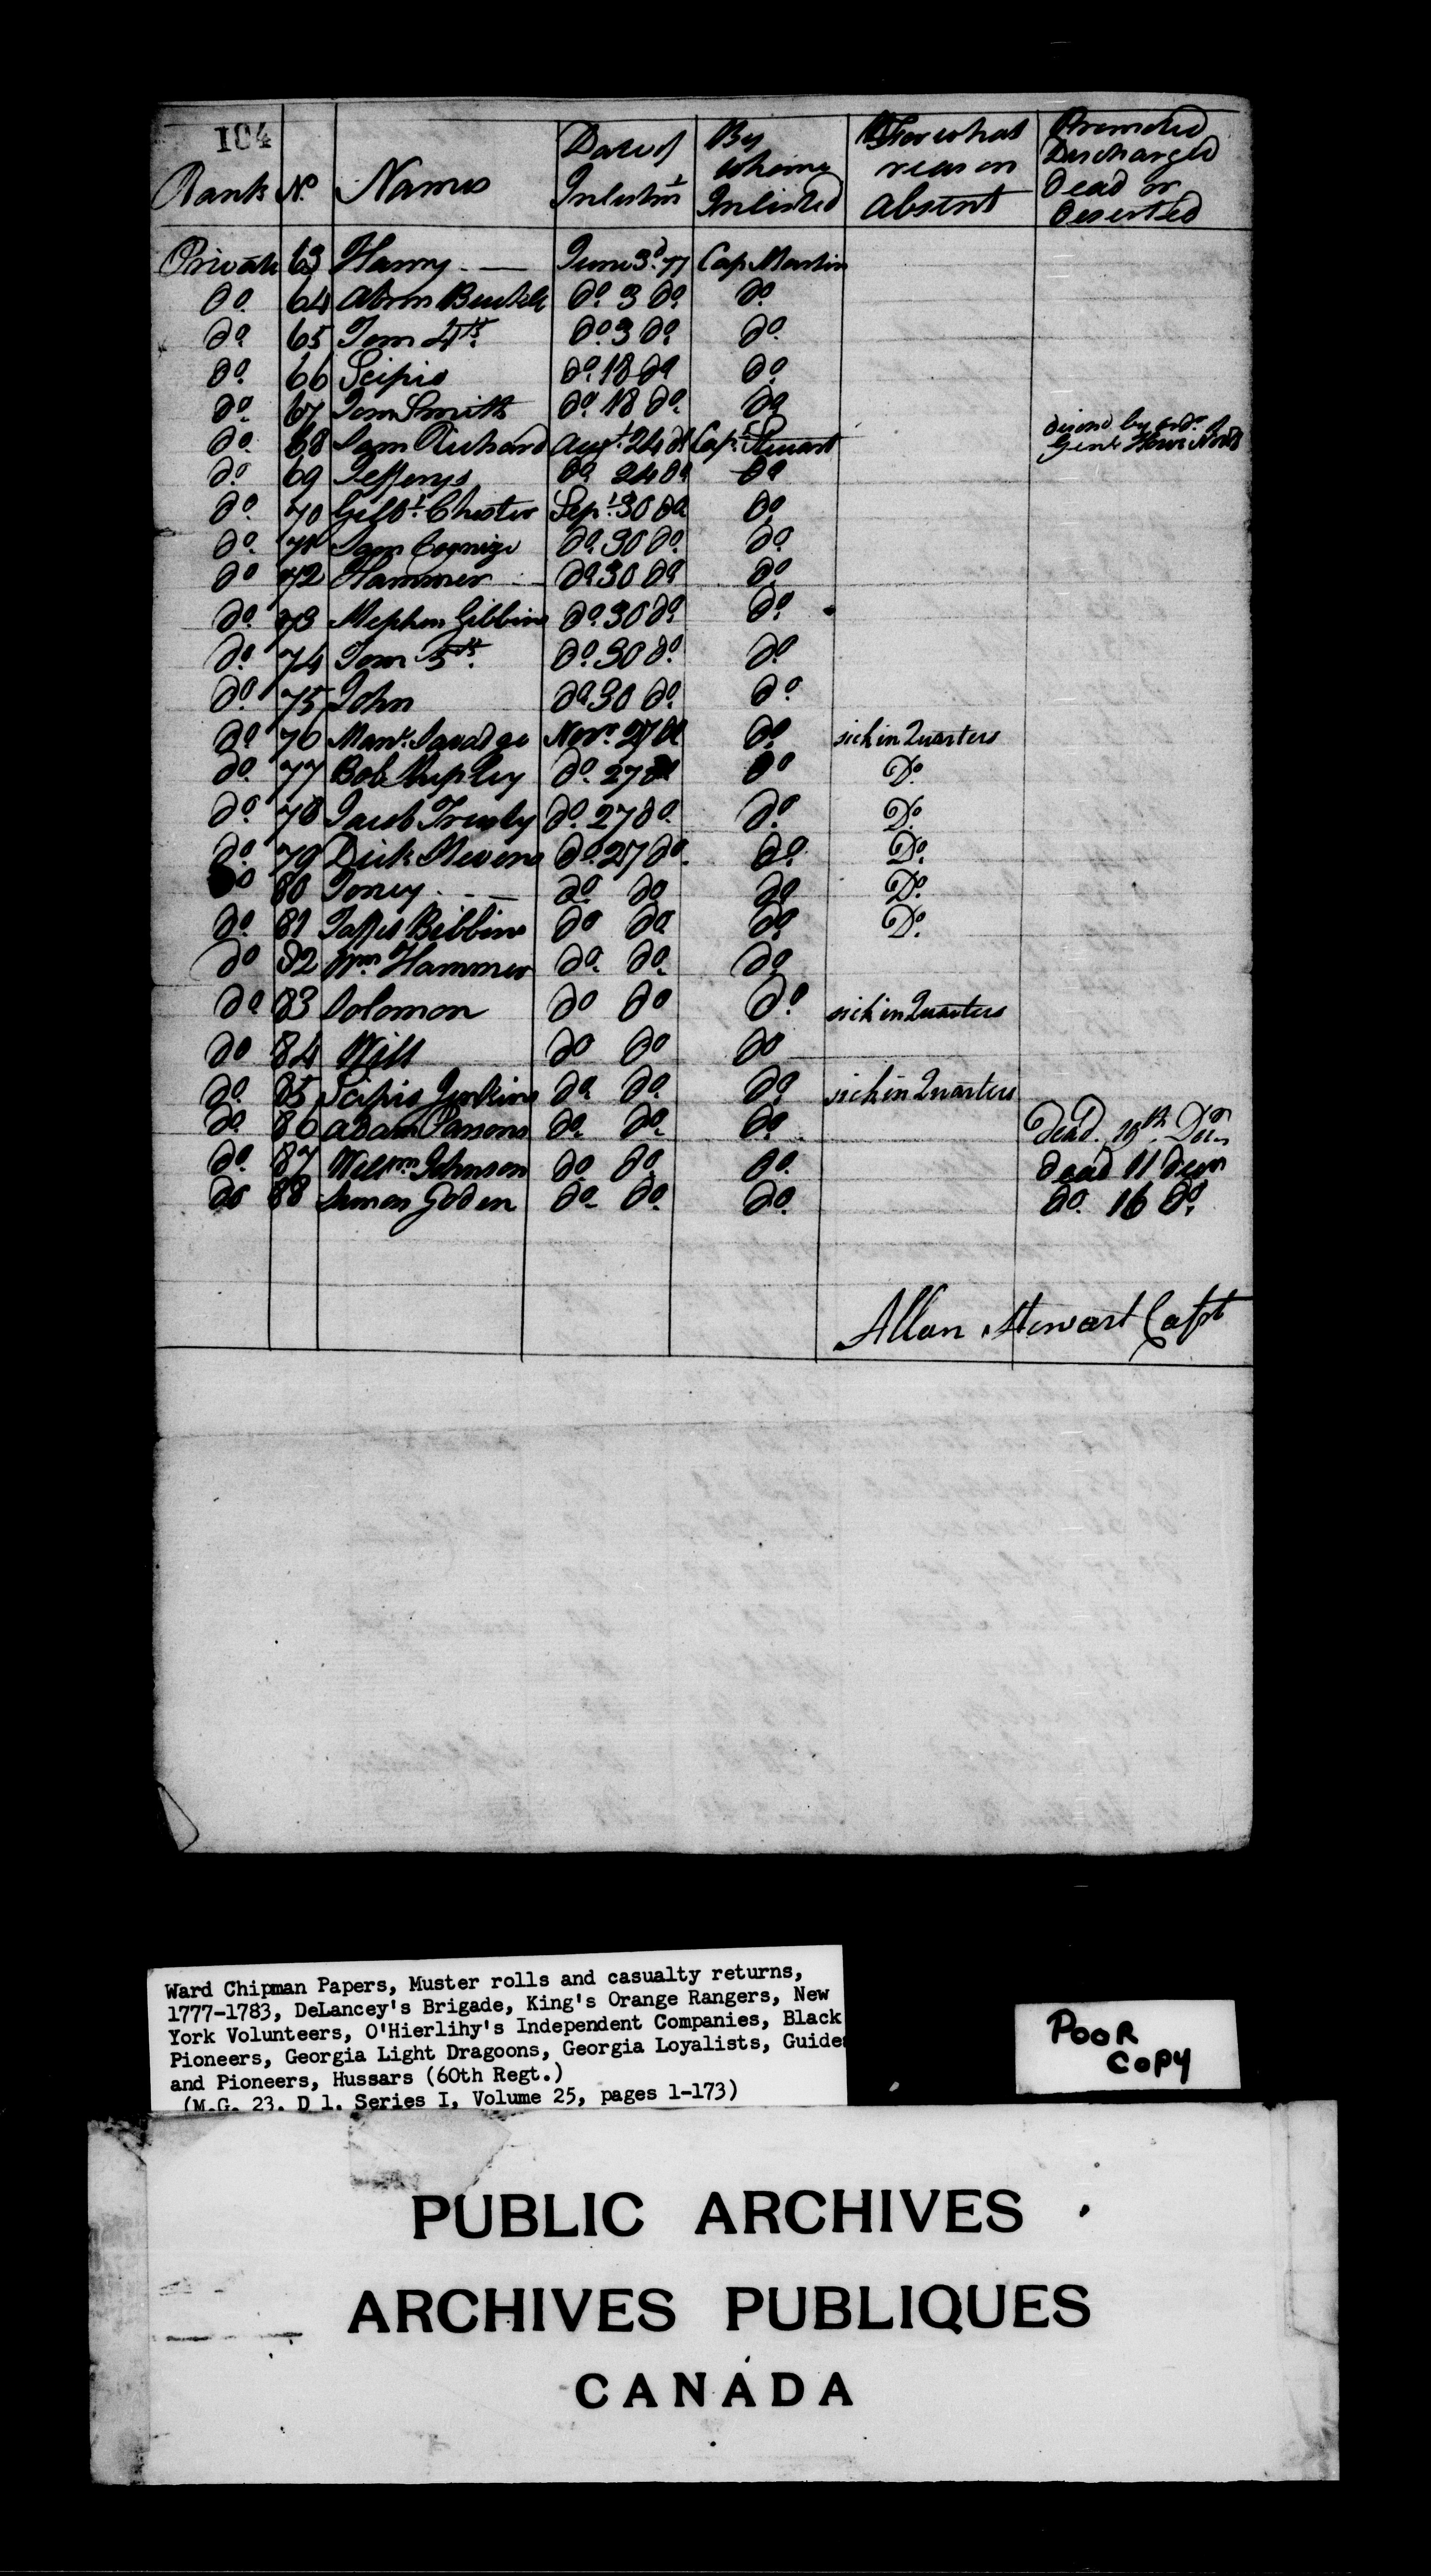 104
Rank No. Names Date of Inlistmt By whome Inlisted For what reason absent Promoted Discharged Dead or Deserted
Private 63 Harry June 3d. 77 Cap. Martin
Do. 64 Abrm do. 3 do. do.
do. 65 Tom 4th. do. 3 do. do.
do. 66 Scipio do. 18 do do.
do. 67 Tom Smith do. 18 do. do
do. 68 Sam Richard Augt. 24 do Capt. Stewart by ordr. of Genl. Howe
do. 69 Jefferys do. 24 do do
do. 70 Gilbt. Chester Sept. 30 do do.
do. 71 Sam do. 30 do. do.
do 72 Hammer do. 30 do do.
do. 73 Stephen Gibbins do. 30 do. do.
do. 74 Tom 5th. do. 30 do. do.
do. 75 John do. 30 do. do.
do. 76 Savadge Novr. 27 do do. sick in Quarters
do. 77 Bob do. 27 do do Do.
do. 78 Jacob do. 27 do. do. Do.
do. 79 Dick Stevens do. 27 do. do. Do.
do 80 Toney do. do do Do.
do. 81 Bibbins do do. do. Do.
do 82 Wm. Hammer do. do. do.
do 83 Solomon do do do. sick in Quarters
do 84 Will do do do
do. 85 Scipio Jenkins do. do. do. sick in Quarters
do. 86 Adam Parsons do. do. do. Dead. 19th. Decr.
do. 87 Willm. Johnson do. do. do. dead 11 decr
do 88 Simon Goden do. do. do. do. 16 do.
Allan Stewart Capt
Ward Chipman Papers, Muster rolls and casualty returns,
1777-1783, DeLancey's Brigade, King's Orange Rangers, New
York Volunteers, O'Hierlihy's Independent Companies, Black
Pioneers, Georgia Light Dragoons, Georgia Loyalists, Guides
and Pioneers, Hussars (60th Regt.)
(M.G. 23, D 1, Series I, Volume 25, pages 1-173)
POOR
COPY
PUBLIC ARCHIVES
ARCHIVES PUBLIQUES
CANADA